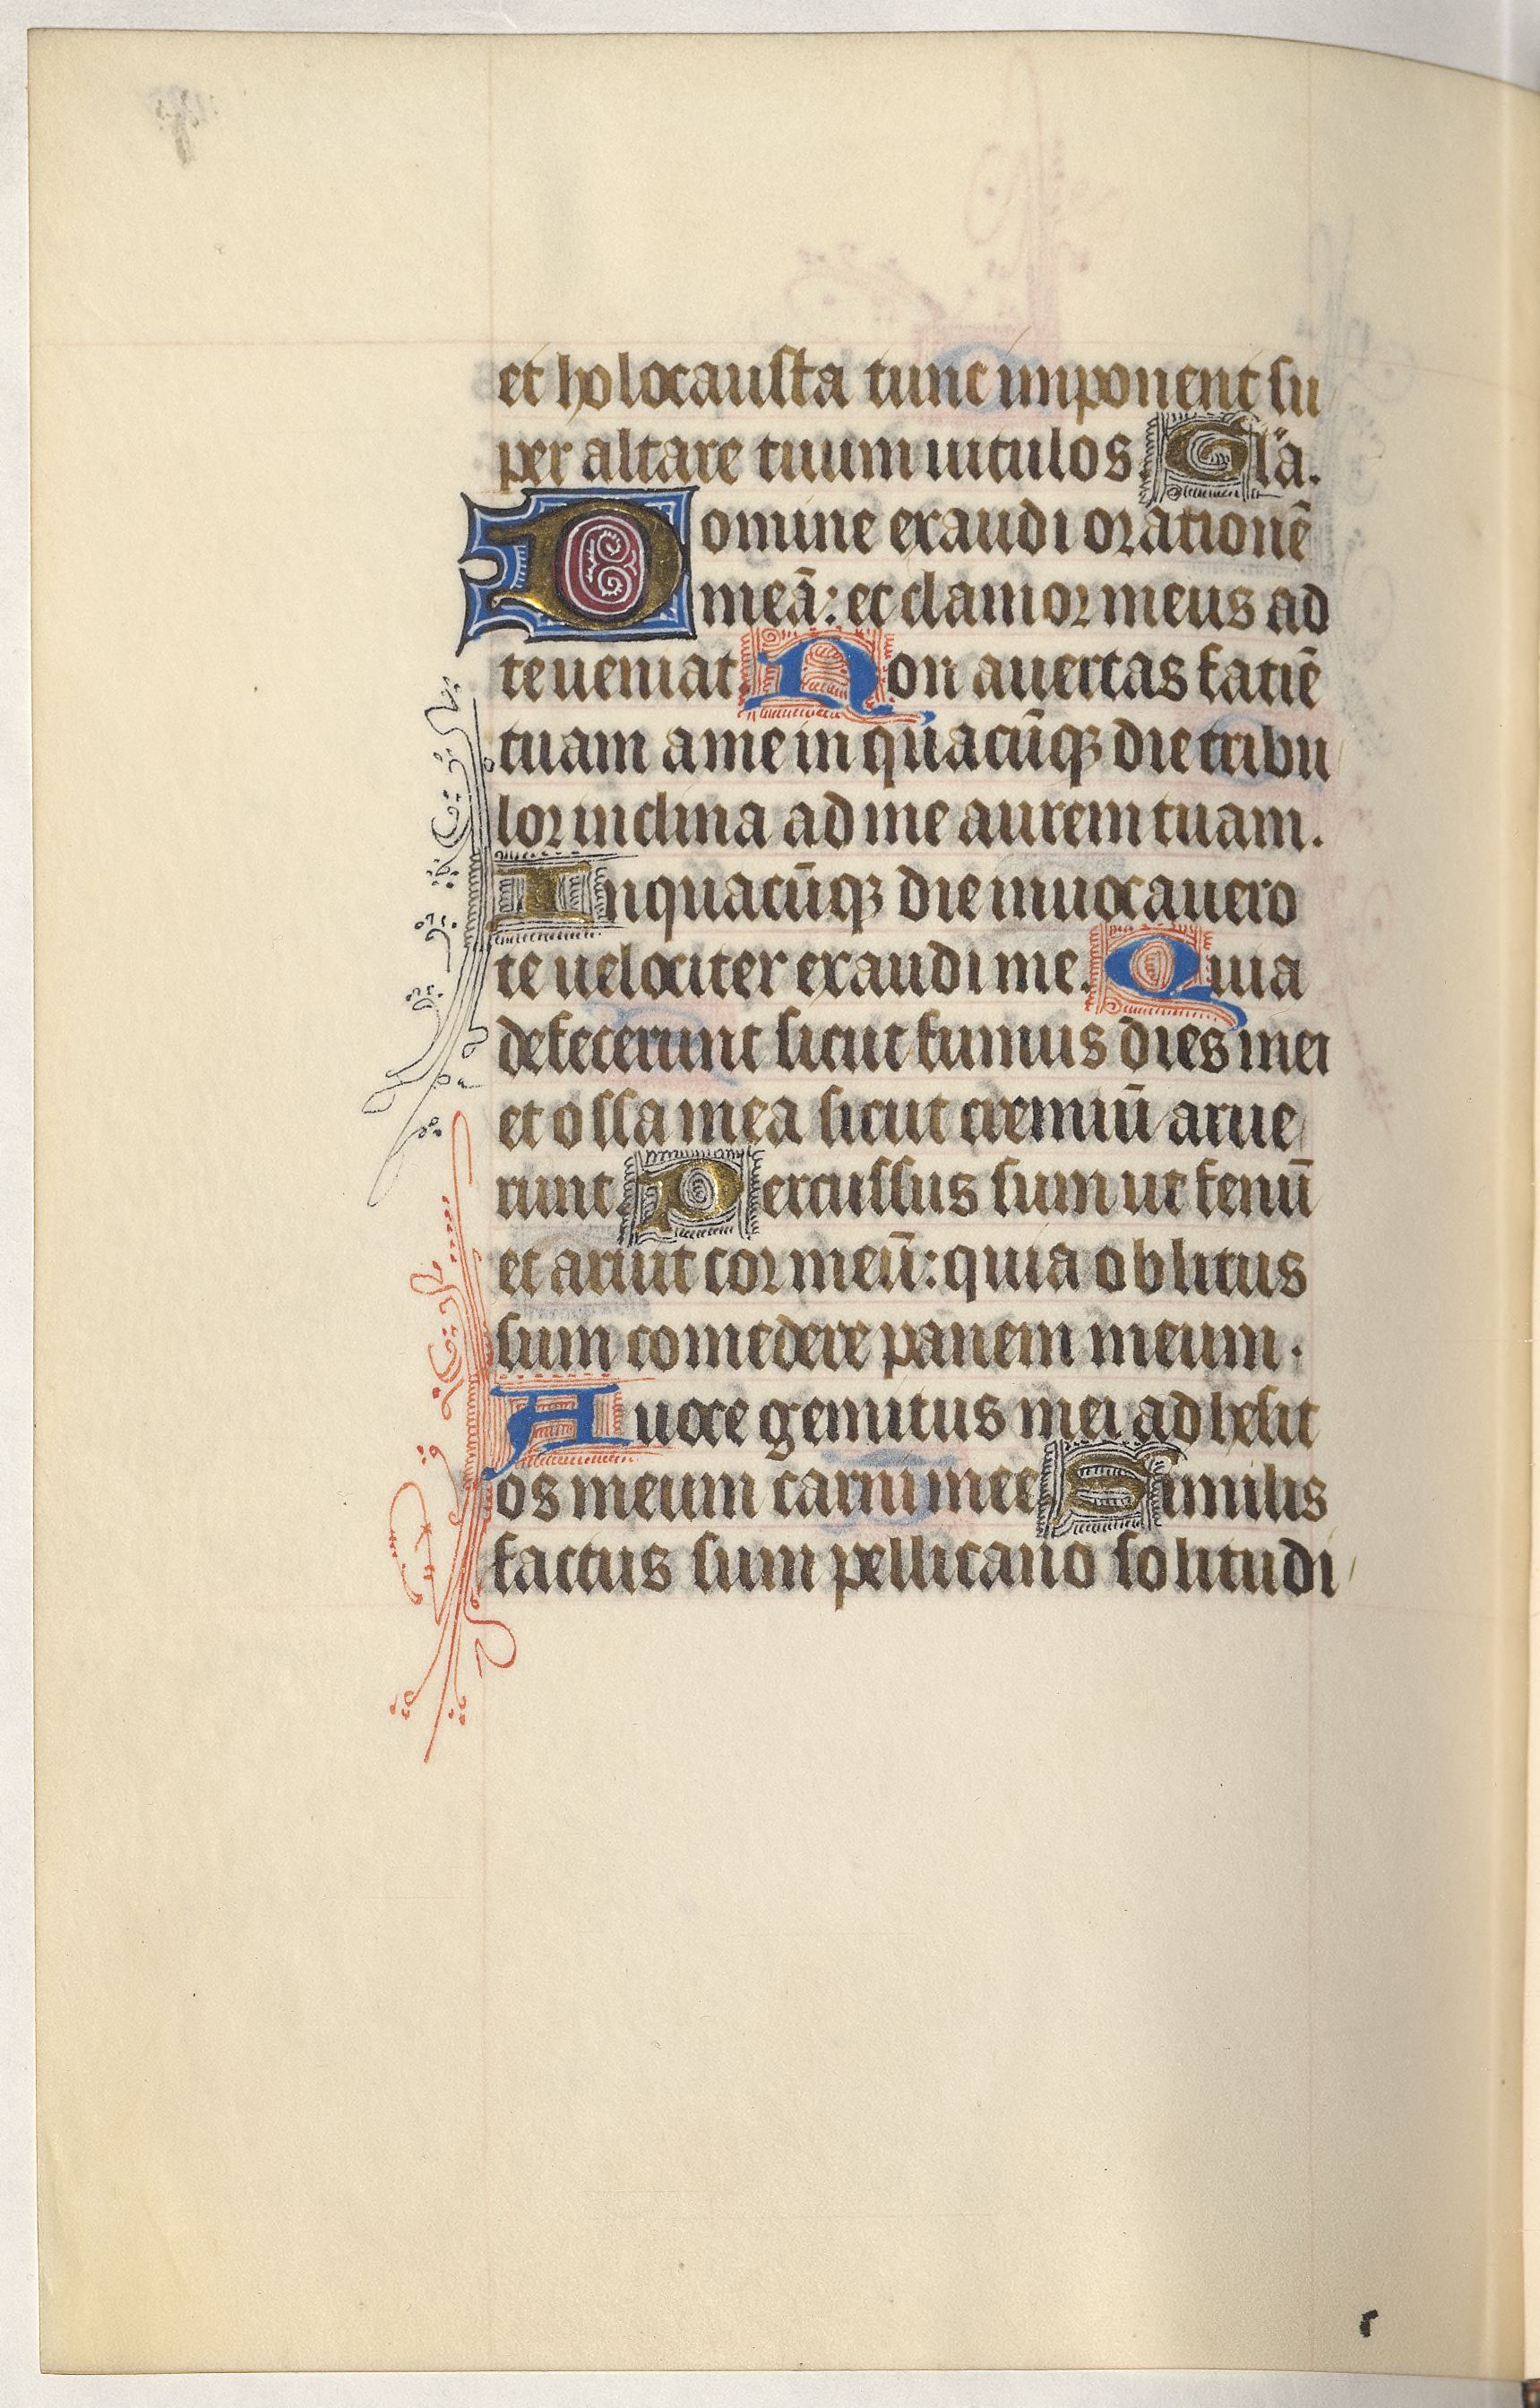 et holocausta tunc imponent su
per altare tuum uitulos. Gla.
Domine exaudi orationē
meā: et clamor meus ad
te ueniat. Non auertas fatiē
tuam a me in quacūq; die tribu
lor inclina ad me aurem tuam.
In quacūq; die inuocauero
te uelociter exaudi me. Quia
defecerunt sicut fumus dies mei
et ossa mea sicut cremiū arue
runt. Percussus sum ut fenū
et aruit cor meū: quia oblitus
sum comedere panem meum.
A uoce gemitus mei adhesit
os meum carni mee. Similis
factus sum pellicano solitudi